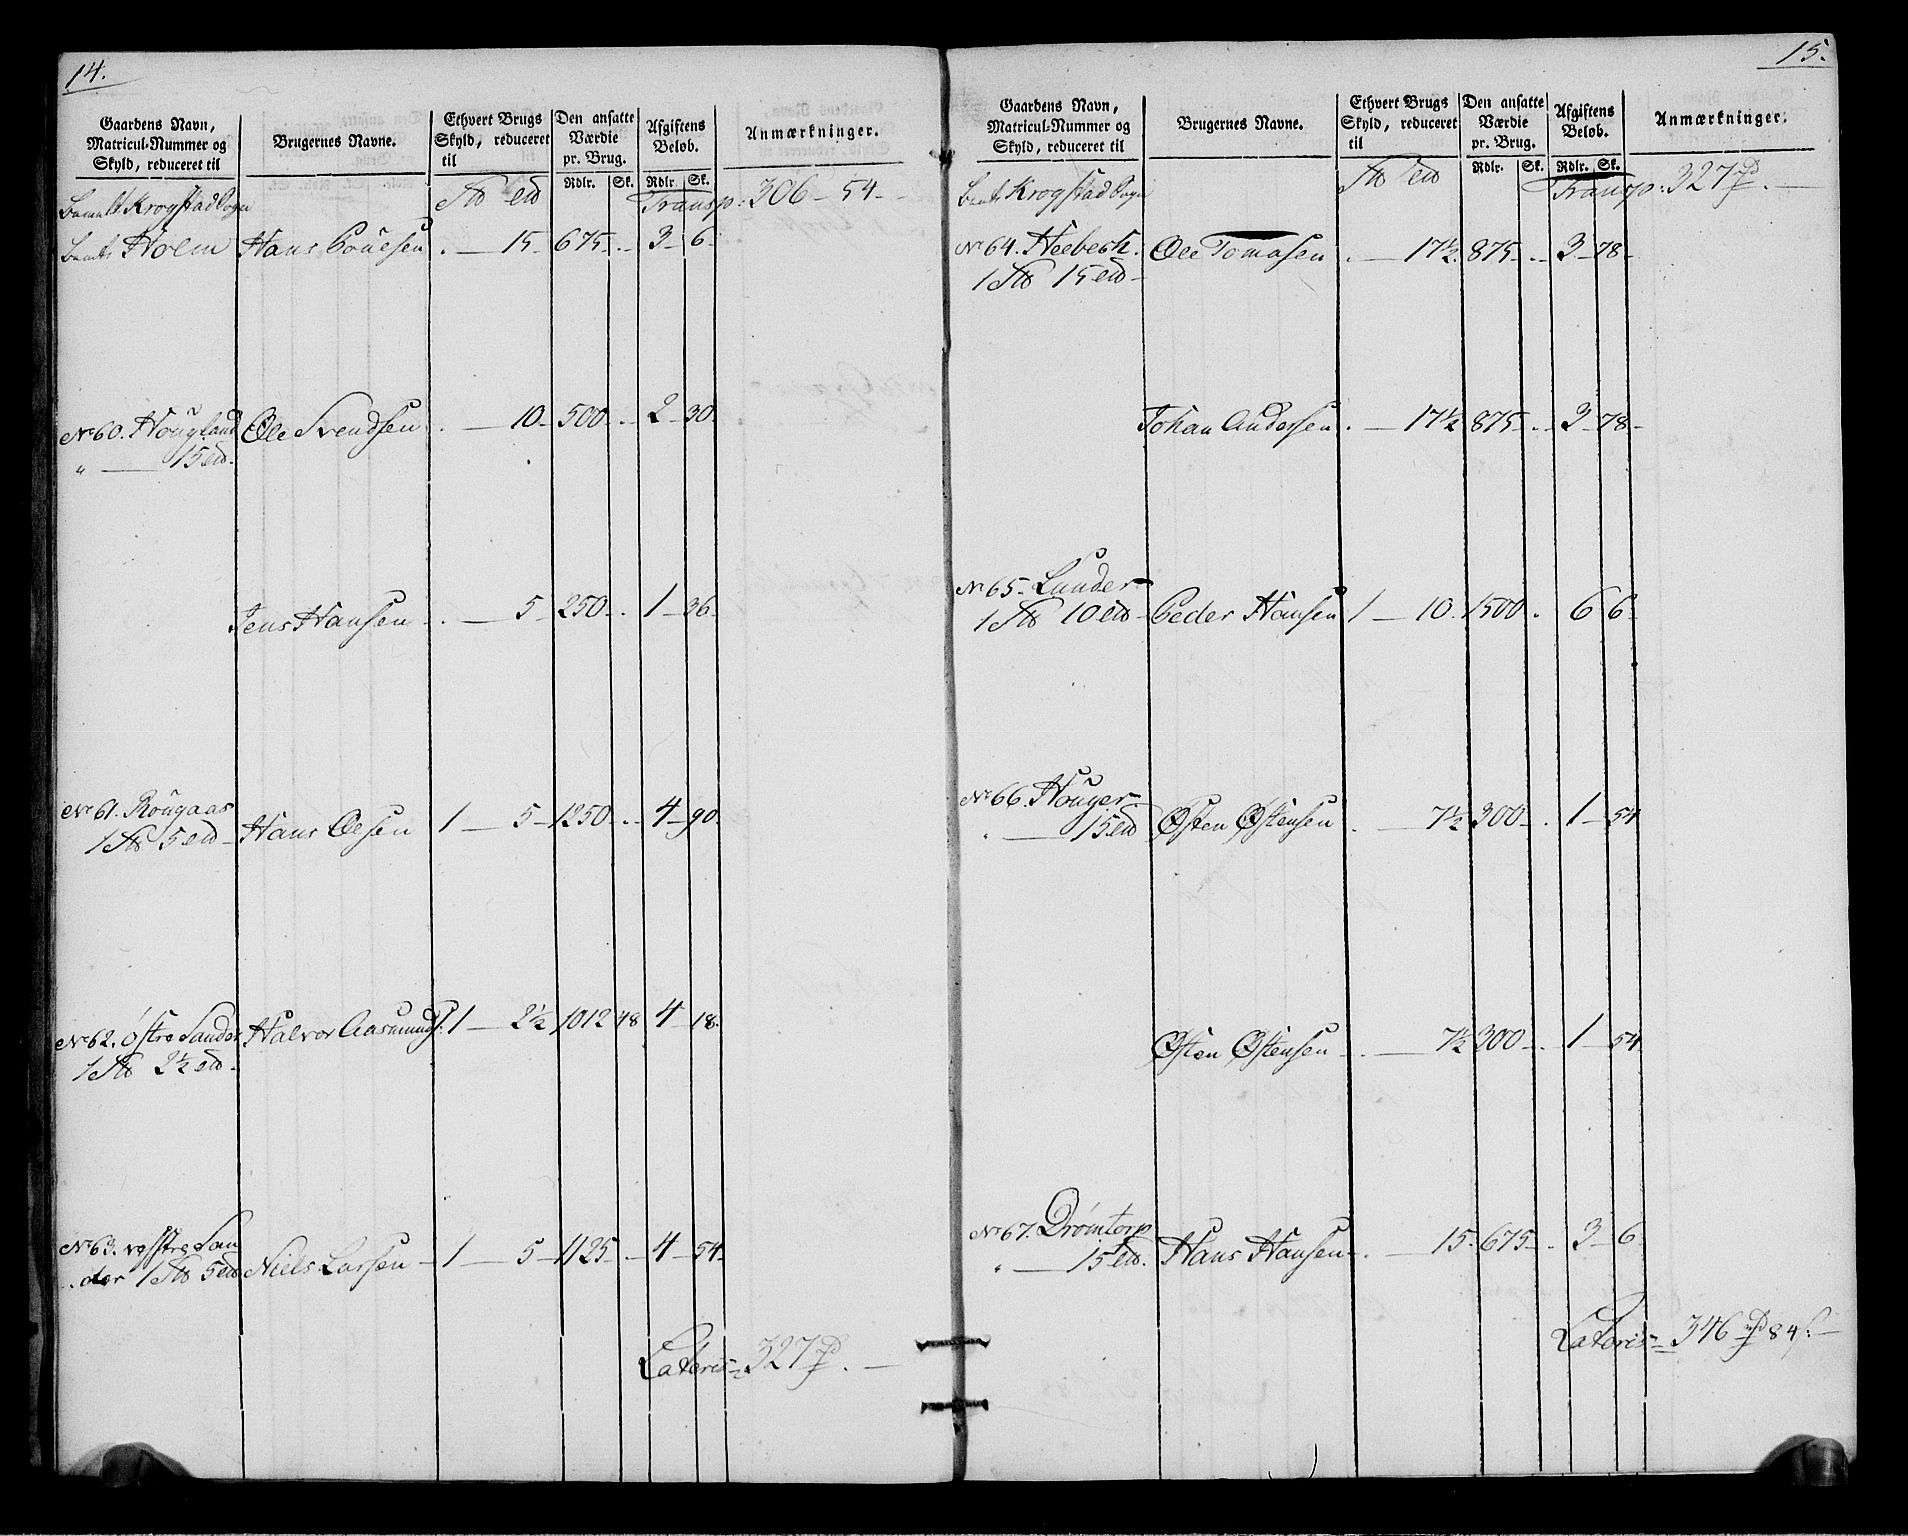 14.
Gaardens Navn, Matricul-Nummer og Skyld, reduceret til | Brugernes Navne. | Ethvert Brugs Skyld, reduceret til | Den ansatte Værdie pr. Brug. | Afgiftens Beløb. | Anmærkninger.
Rdlr. Sk. Rdlr. Sk.
Krogstad Sogn Transp: 306 - 54 -
Holm Hans Pouelsen . — 15 - 675 - - 3 - 6 -
No 60. Hougland Ole Svendsen . — 10 - 500 - - 2 - 30 -
" — 15
Jens Hansen . — 5 - 250 - - 1 - 36 -
No 61. Rougaas Hans Olsen 1 — 5 - 1250 - - 4 - 90
1 5
No 62. Østre Sander Halvor Aasmunds: 1 — 2½ 1012 48 4 - 18 -
1 2½
No 63. vestre San
der 1 5 Niels Larsen - 1 — 5 - 1125 - - 4 - 54 -
Lateris = 327 . —
15.
Gaardens Navn, Matricul-Nummer og Skyld, reduceret til | Brugernes Navne. | Ethvert Brugs Skyld, reduceret til | Den ansatte Værdie pr. Brug. | Afgiftens Beløb. | Anmærkninger.
Rdlr. Sk. Rdlr. Sk.
Krogstad Sogn Transp: 327 . —
No 64. Heebech. Ole Tomasen . — 17½ 875 - - 3 - 78 -
1 15
Johan Andersen . — 17½ 875 - - 3 - 78 -
No 65 - Lunder
1 10 Peder Hansen 1 — 10 - 1500 - 6 6 -
No 66. Houger
" — 15 Østen Østensen . — 7½ 300 - - 1 - 54
Østen Østensen - . — 7½ 300 - - 1 - 54
No 67. Drømtorp
" — 15 Hans Hansen . — 15 - 675 - - 3 - 6
Lateris = 346 84 s. —